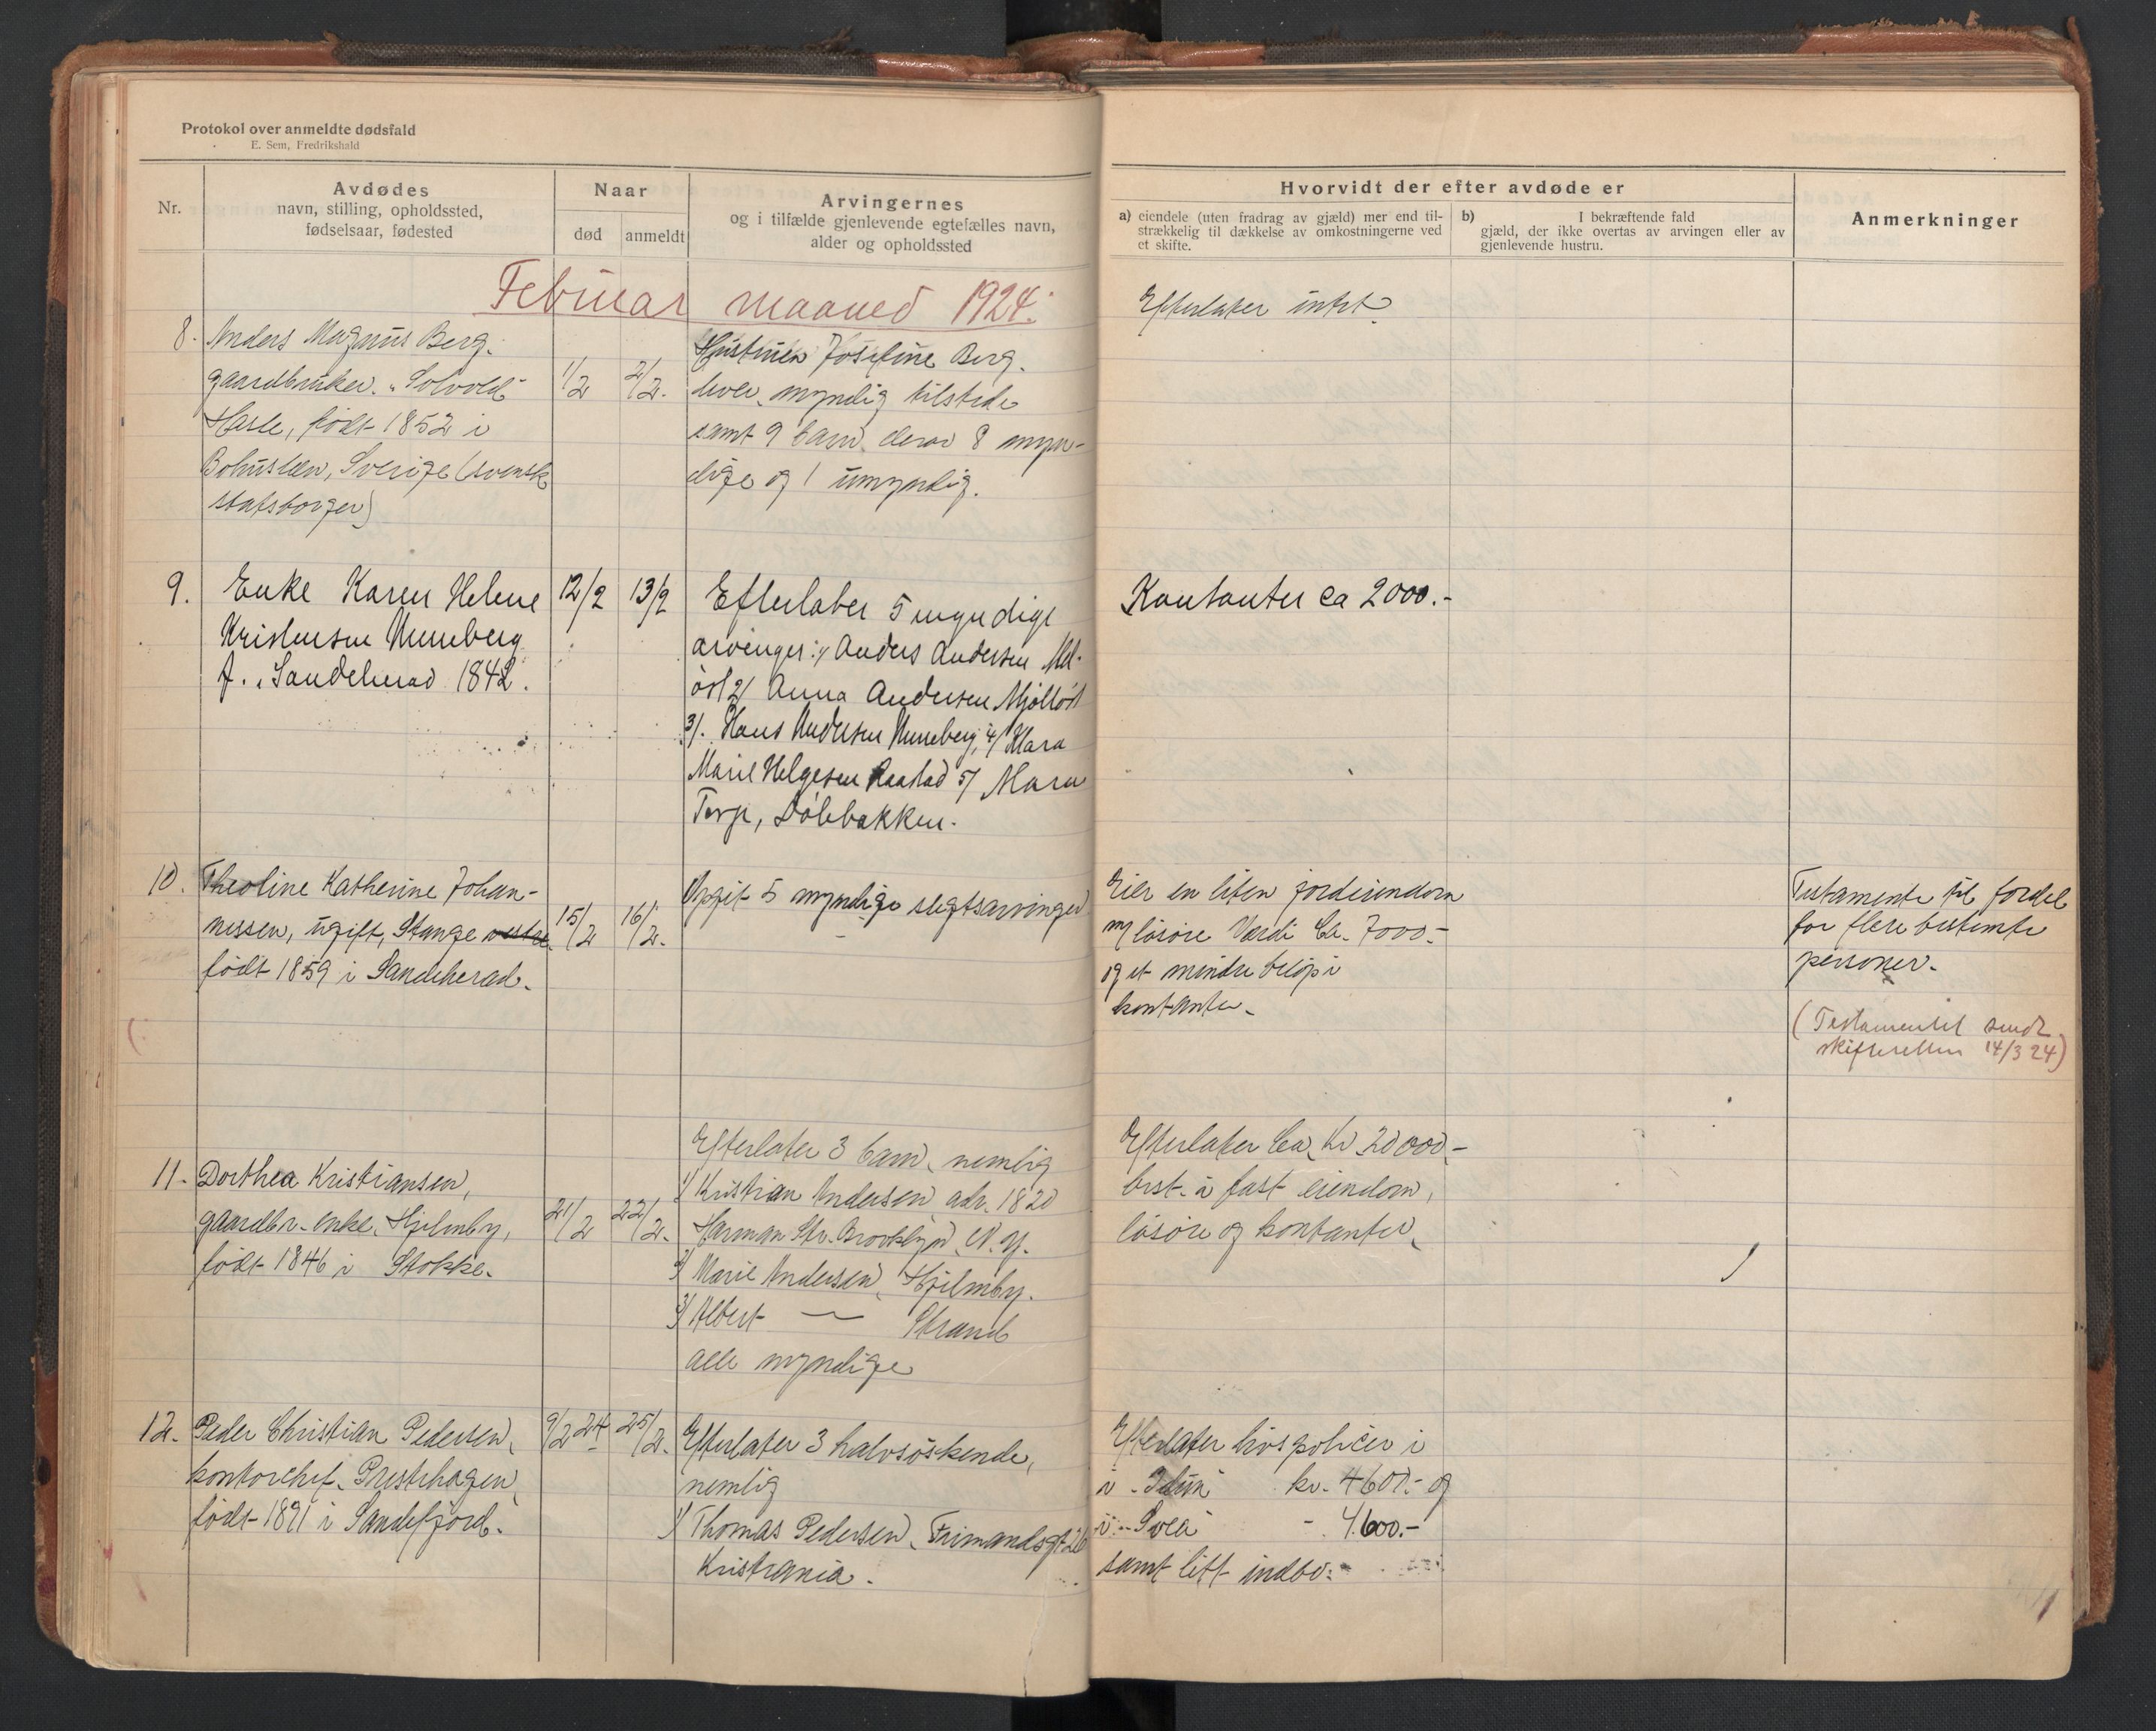 Protokol over anmeldte dødsfald
E. Sem, Fredrikshald
Nr.
Avdødes
navn, stilling, opholdssted,
fødselsaar, fødested
Naar
død
anmeldt
Arvingernes
og i tilfælde gjenlevende egtefælles navn,
alder og opholdssted
Februar maaned 1924.
8. Anders Magnus Berg.
gaardbruker. "Solvold"
Hasle, født 1852 i
Bohuslen, Sverige (svensk
statsborger)
1/2
2/2.
Hustruen Josefine Berg.
lever, myndig tilstede
samt 9 barn, derav 8 myn-
dige og 1 umyndig.
9. Enke Karen Helene
Kristensen Unneberg
f. i Sandeherad 1842.
12/2
13/2
Efterlater 5 myndige
arvinger: 1/ Anders Andersen Mel-
öst 2/ Anna Andersen Mjölløst
3/. Hans Andersen Unneberg, 4/ Klara
Marie Helgesen Raastad 5/ Maren
Torp, Dølebakken.
10. Theoline Katherine Johan-
nessen, ugift, Stange vestre
født 1859 i Sandeherad.
15/2
16/2.
Opgit 5 myndige slegtsarvinger
11. Dorthea Kristiansen,
gaardbr. enke. Hjelmby,
født 1846 i Stokke.
21/2
22/2.
Efterlater 3 barn, nemlig
1/ Kristian Andersen, adr. 1820
Harman Str. Brooklyn, N.Y.
2/ Marie Andersen, Hjelmby.
3/ Albert — Strand
alle myndige
12. Peder Christian Pedersen,
kontorchef, Prestehagen,
født 1891 i Sandefjord.
9/2 24
25/2.
Efterlater 3 halvsøskende,
nemlig
1/ Thomas Pedersen, Frimandsgt 26
Kristiania.
Hvorvidt der efter avdøde er
a) eiendele (uten fradrag av gjæld) mer end til-
strækkelig til dækkelse av omkostningerne ved
et skifte.
b) I bekræftende fald
gjæld, der ikke overtas av arvingen eller av
gjenlevende hustru.
Anmerkninger
Efterlater intet
Kontanter ca 2000.-
Eier en liten jordeiendom
m/ løsøre Værdi Ca. 7000.-
og et mindre beløp i
kontanter.
Testamente til fordel
for flere bestemte
personer.
(Testamentet sendt
skifteretten 14/3 24)
Efterlater Ca. Kr 20000.-
best. i fast eiendom,
løsøre og kontanter.
Efterlater livspolicer i
i "Idun" kr. 4600.- og
i "Svea" - 4600.-
samt litt indbo.